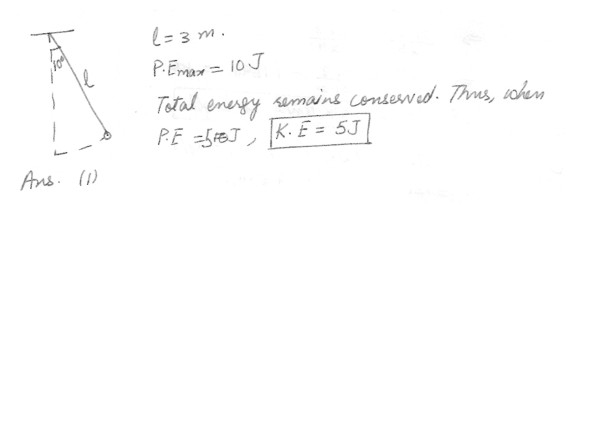 l = 3 m.
10°
l
P.Emax = 10 J
Total energy remains conserved. Thus, when
P.E = 5 J, K.E = 5J
Ans. (1)